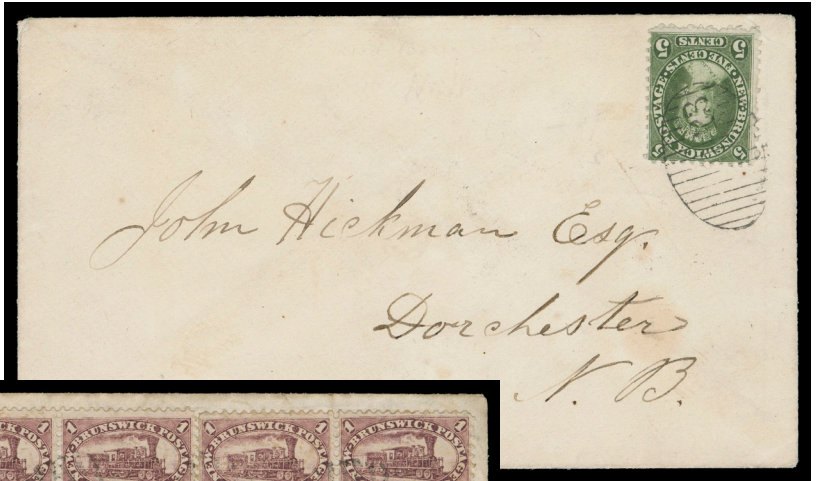 5 5
CENTS
FIVE CENTS
NEW-BRUNSWICK POSTAGE
5 5
John Hickman Esq.
Dorchester
N. B.
1 NEW-BRUNSWICK POSTAGE 1
1 NEW-BRUNSWICK POSTAGE 1
1 NEW-BRUNSWICK POSTAGE 1